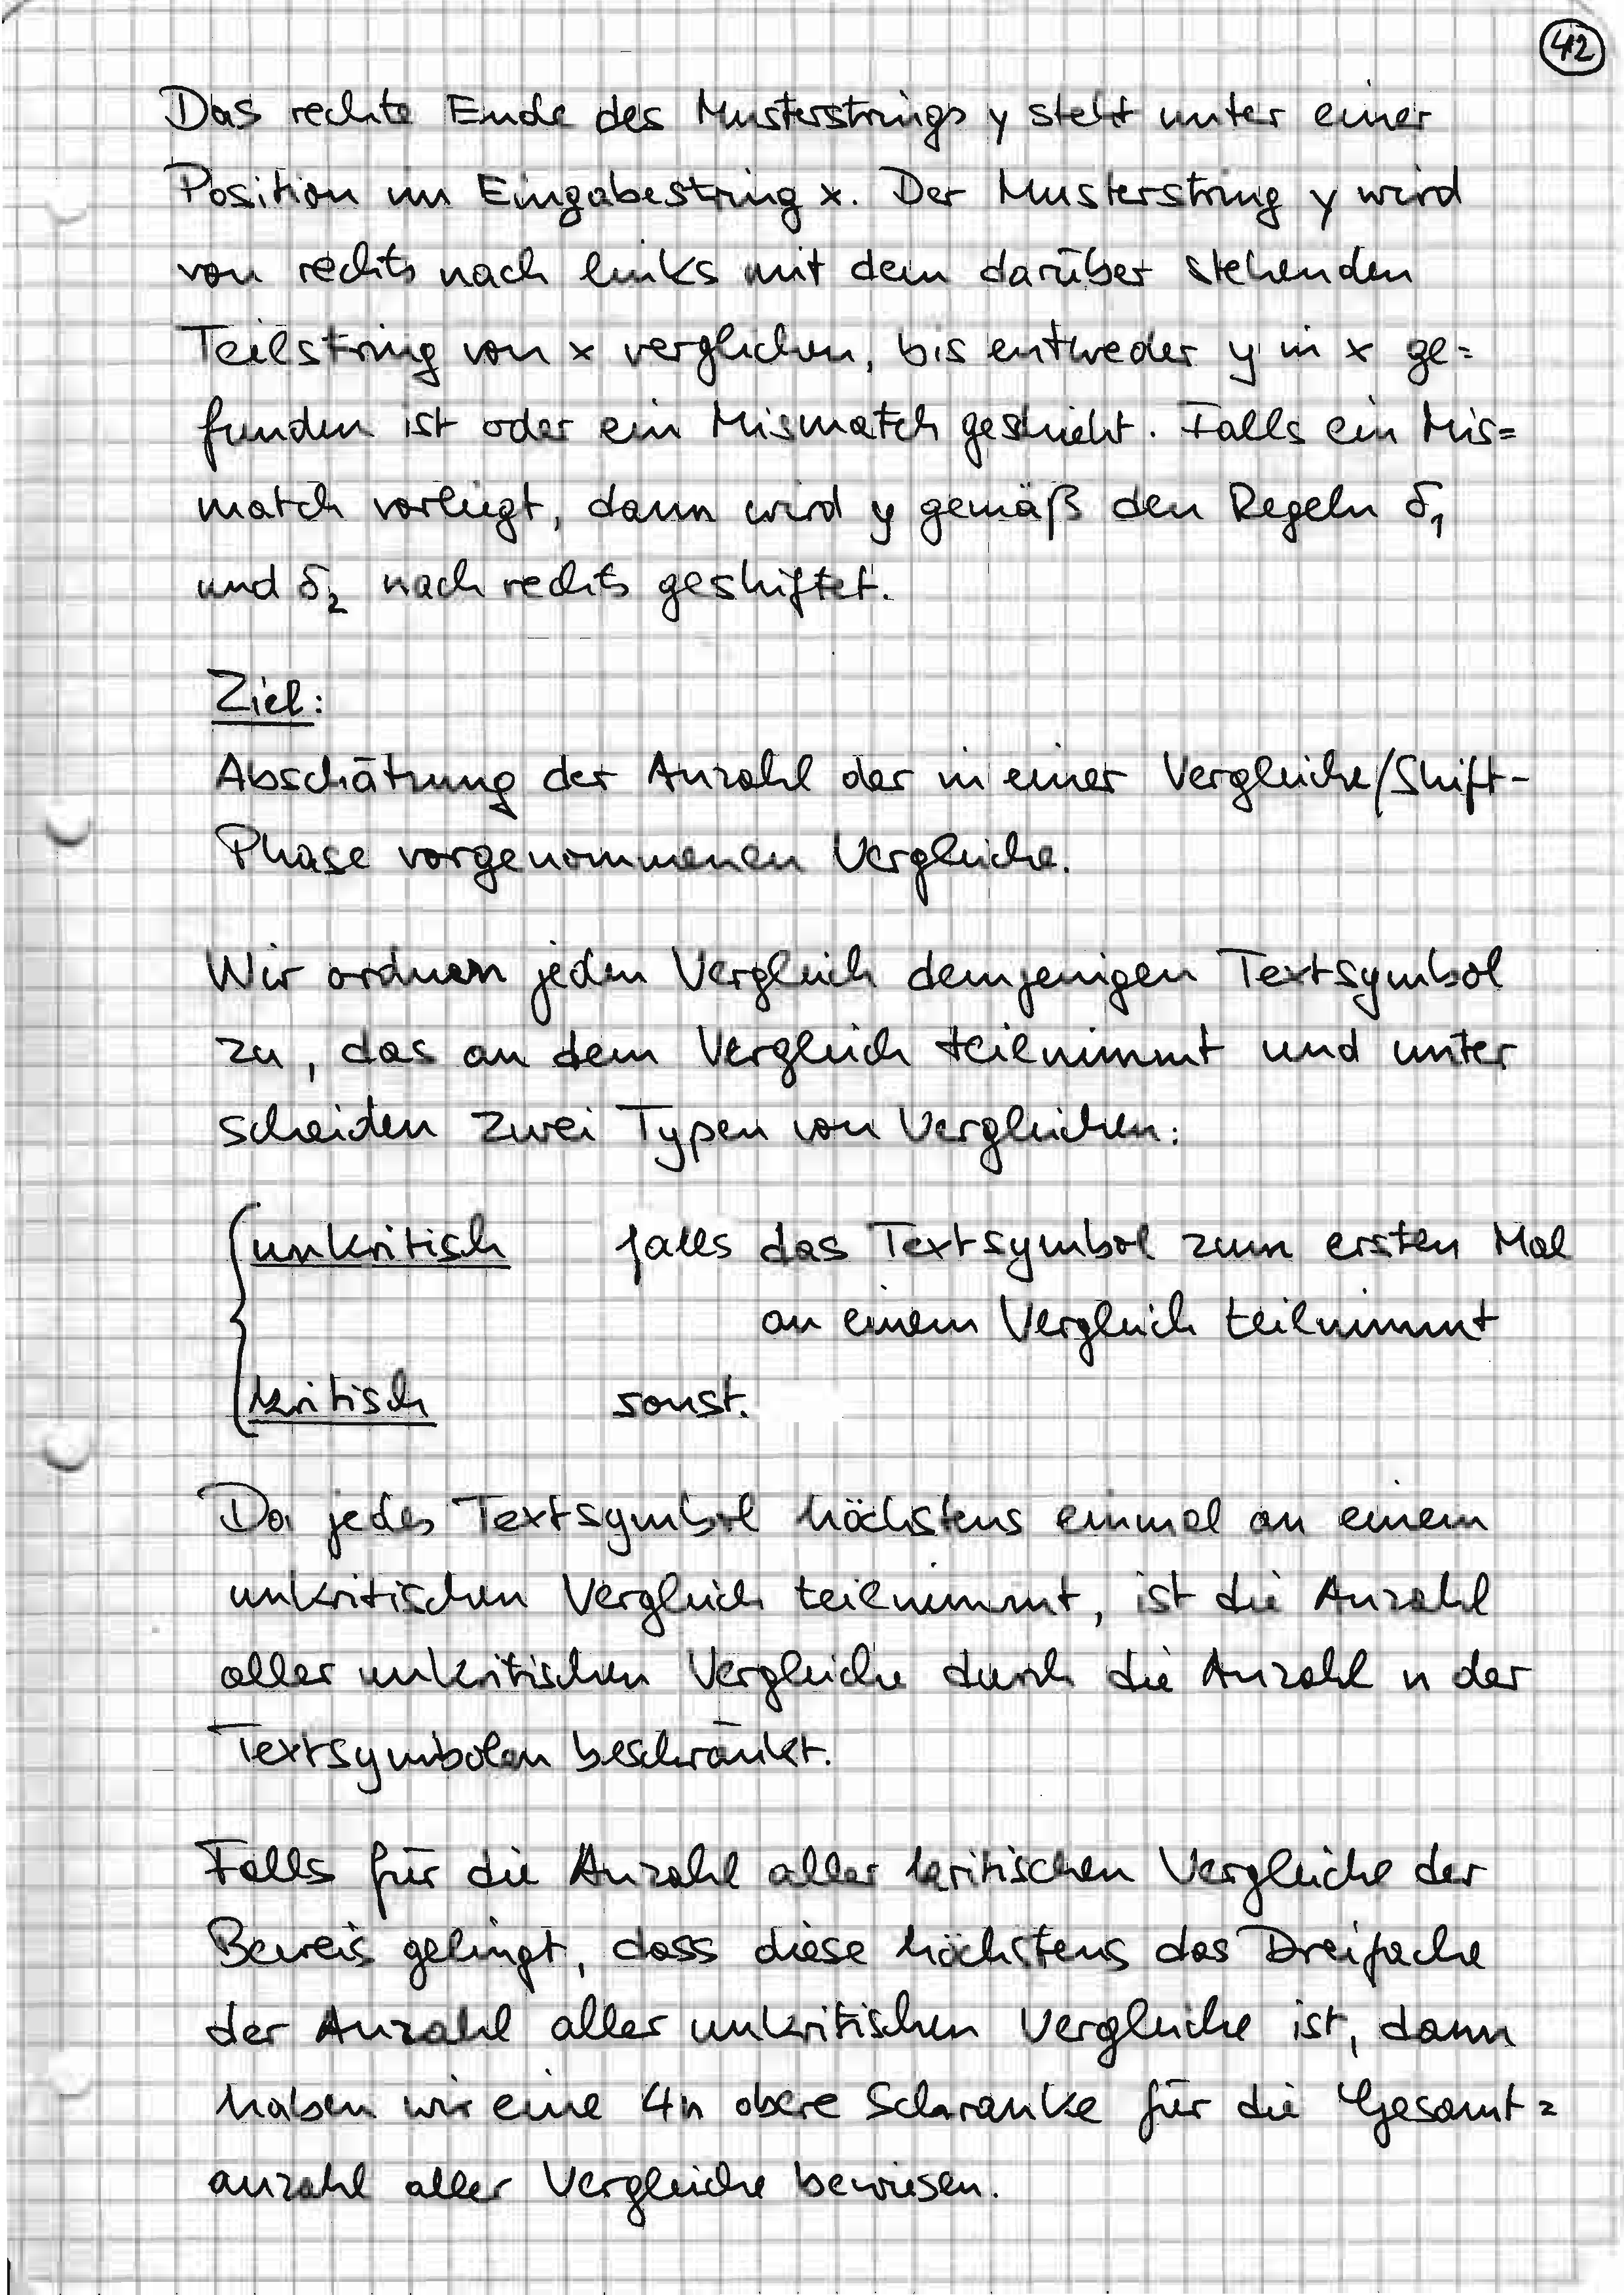 42
Das rechte Ende des Musterstrings y steht unter einer
Position im Eingabestring x. Der Musterstring y wird
von rechts nach links mit dem darüber stehenden
Teilstring von x verglichen, bis entweder y in x ge=
funden ist oder ein Mismatch geschieht. Falls ein Mis=
match vorliegt, dann wird y gemäß den Regeln δ₁
und δ₂ nach rechts geshiftet.
Ziel:
Abschätzung der Anzahl der in einer Vergleiche/Shift-
Phase vorgenommenen Vergleiche.
Wir ordnen jeden Vergleich demjenigen Textsymbol
zu, das an dem Vergleich teilnimmt und unter
scheiden zwei Typen von Vergleichen:
unkritisch falls das Textsymbol zum ersten Mal
an einem Vergleich teilnimmt
kritisch sonst.
Da jedes Textsymbol höchstens einmal an einem
unkritischen Vergleich teilnimmt, ist die Anzahl
aller unkritischen Vergleiche durch die Anzahl n der
Textsymbolen beschränkt.
Falls für die Anzahl aller kritischen Vergleiche der
Beweis gelingt, dass diese höchstens das Dreifache
der Anzahl aller unkritischen Vergleiche ist, dann
haben wir eine 4n obere Schranke für die Gesamt=
anzahl aller Vergleiche bewiesen.